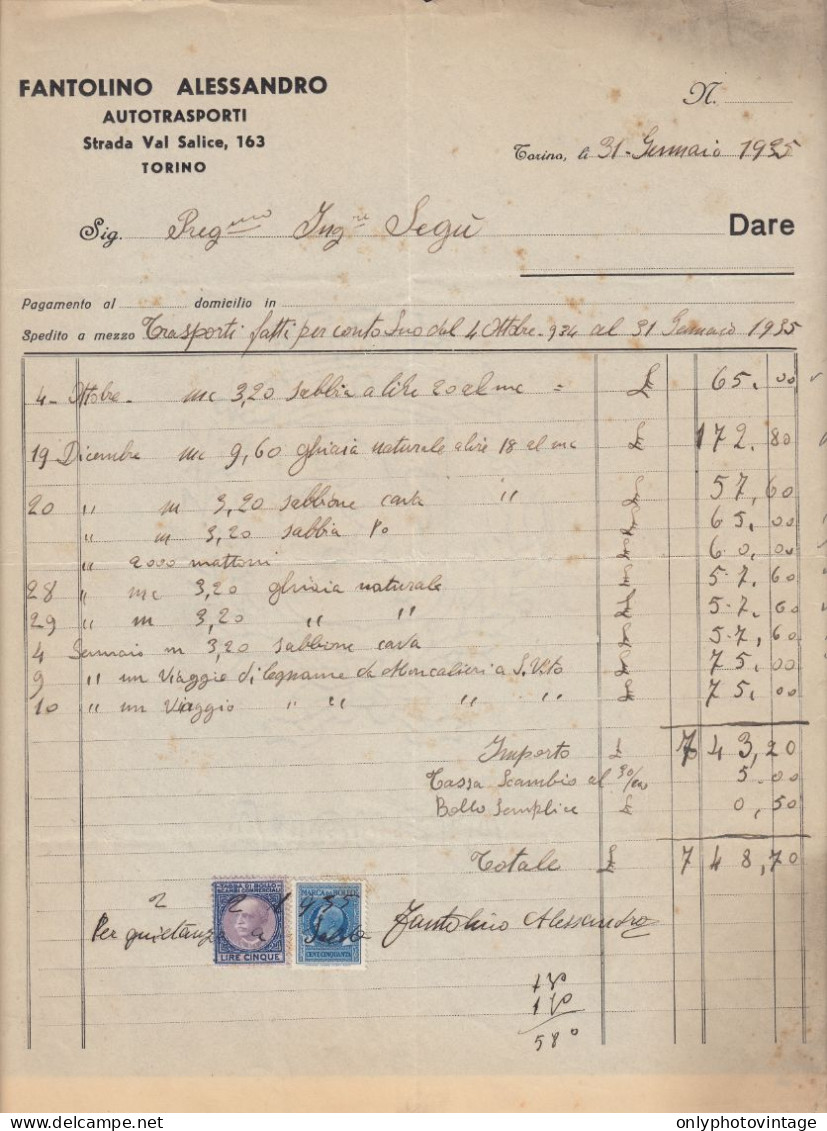 FANTOLINO ALESSANDRO
AUTOTRASPORTI
Strada Val Salice, 163
TORINO
N.
Torino, li 31 - Gennaio 1935
Sig. Preg mo Ing re Segù
Dare
Pagamento al domicilio in
Spedito a mezzo Trasporti fatti per conto Suo dal 4 Ottobre - 934 al 31 Gennaio 1935
4 - Ottobre - mc 3,20 sabbia a lire 20 al mc = £ 65.00
19 Dicembre mc 9,60 ghiaia naturale a lire 18 al mc £ 172.80
20 " m 3,20 sabbione cava " £ 57,60
" m 3,20 sabbia Po £ 65.00
" 2000 mattoni £ 60.00
28 " mc 3,20 ghiaia naturale £ 57.60
29 " m 3,20 " " £ 57.60
4 Gennaio m 3,20 sabbione cava £ 57,60
9 " un Viaggio di legname da Moncalieri a S. Vito £ 75.00
10 " un Viaggio " " " " £ 75.00
Importo £ 743,20
Tassa Scambio al 5.00
Bollo Semplice £ 0,50
Totale £ 748,70
TASSA DI BOLLO
SCAMBI COMMERCIALI
LIRE CINQUE
MARCA DA BOLLO
CENT. CINQUANTA
2 2 1935
Per quietanza a Saldo Fantolino Alessandro
580
www.delcampe.net
onlyphotovintage